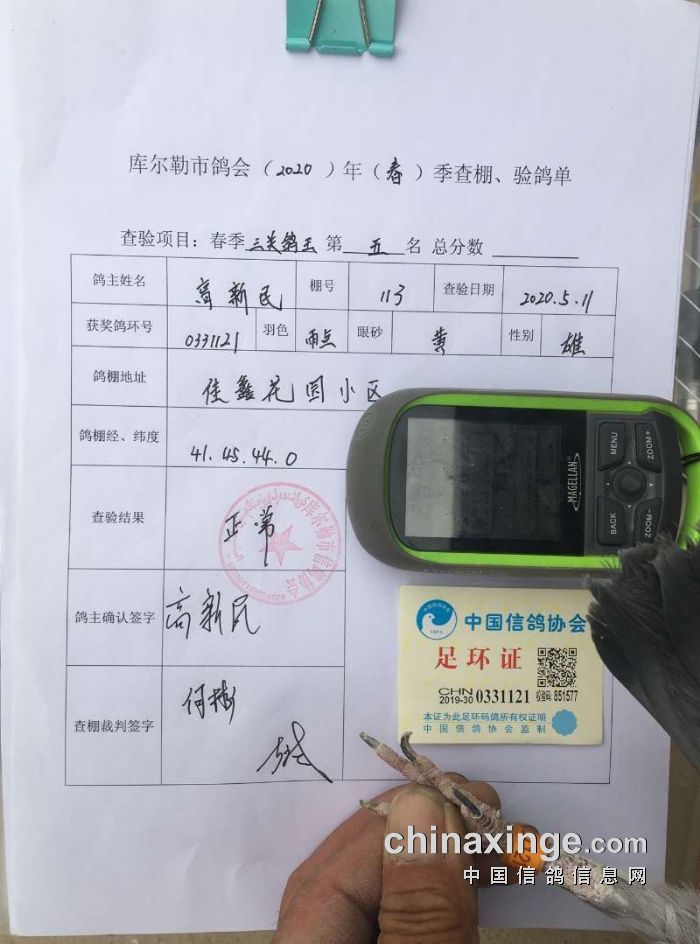 库尔勒市鸽会（2020）年（春）季查棚、验鸽单
查验项目：春季三关鸽王 第 五 名 总分数
鸽主姓名 高新民 棚号 113 查验日期 2020.5.11
获奖鸽环号 0331121 羽色 雨点 眼砂 黄 性别 雄
鸽棚地址 佳鑫花园小区
鸽棚经、纬度 41.45.44.0
查验结果 正常
库尔勒市信鸽协会
鸽主确认签字 高新民
查棚裁判签字 何彬
MAGELLAN
MENU
ZOOM+
BACK
ZOOM-
中国信鸽协会
足环证
CHN
2019-30 0331121 校验码 851577
本证为此足环码鸽所有权证明
中国信鸽协会监制
21
chinaxinge.com
中国信鸽信息网